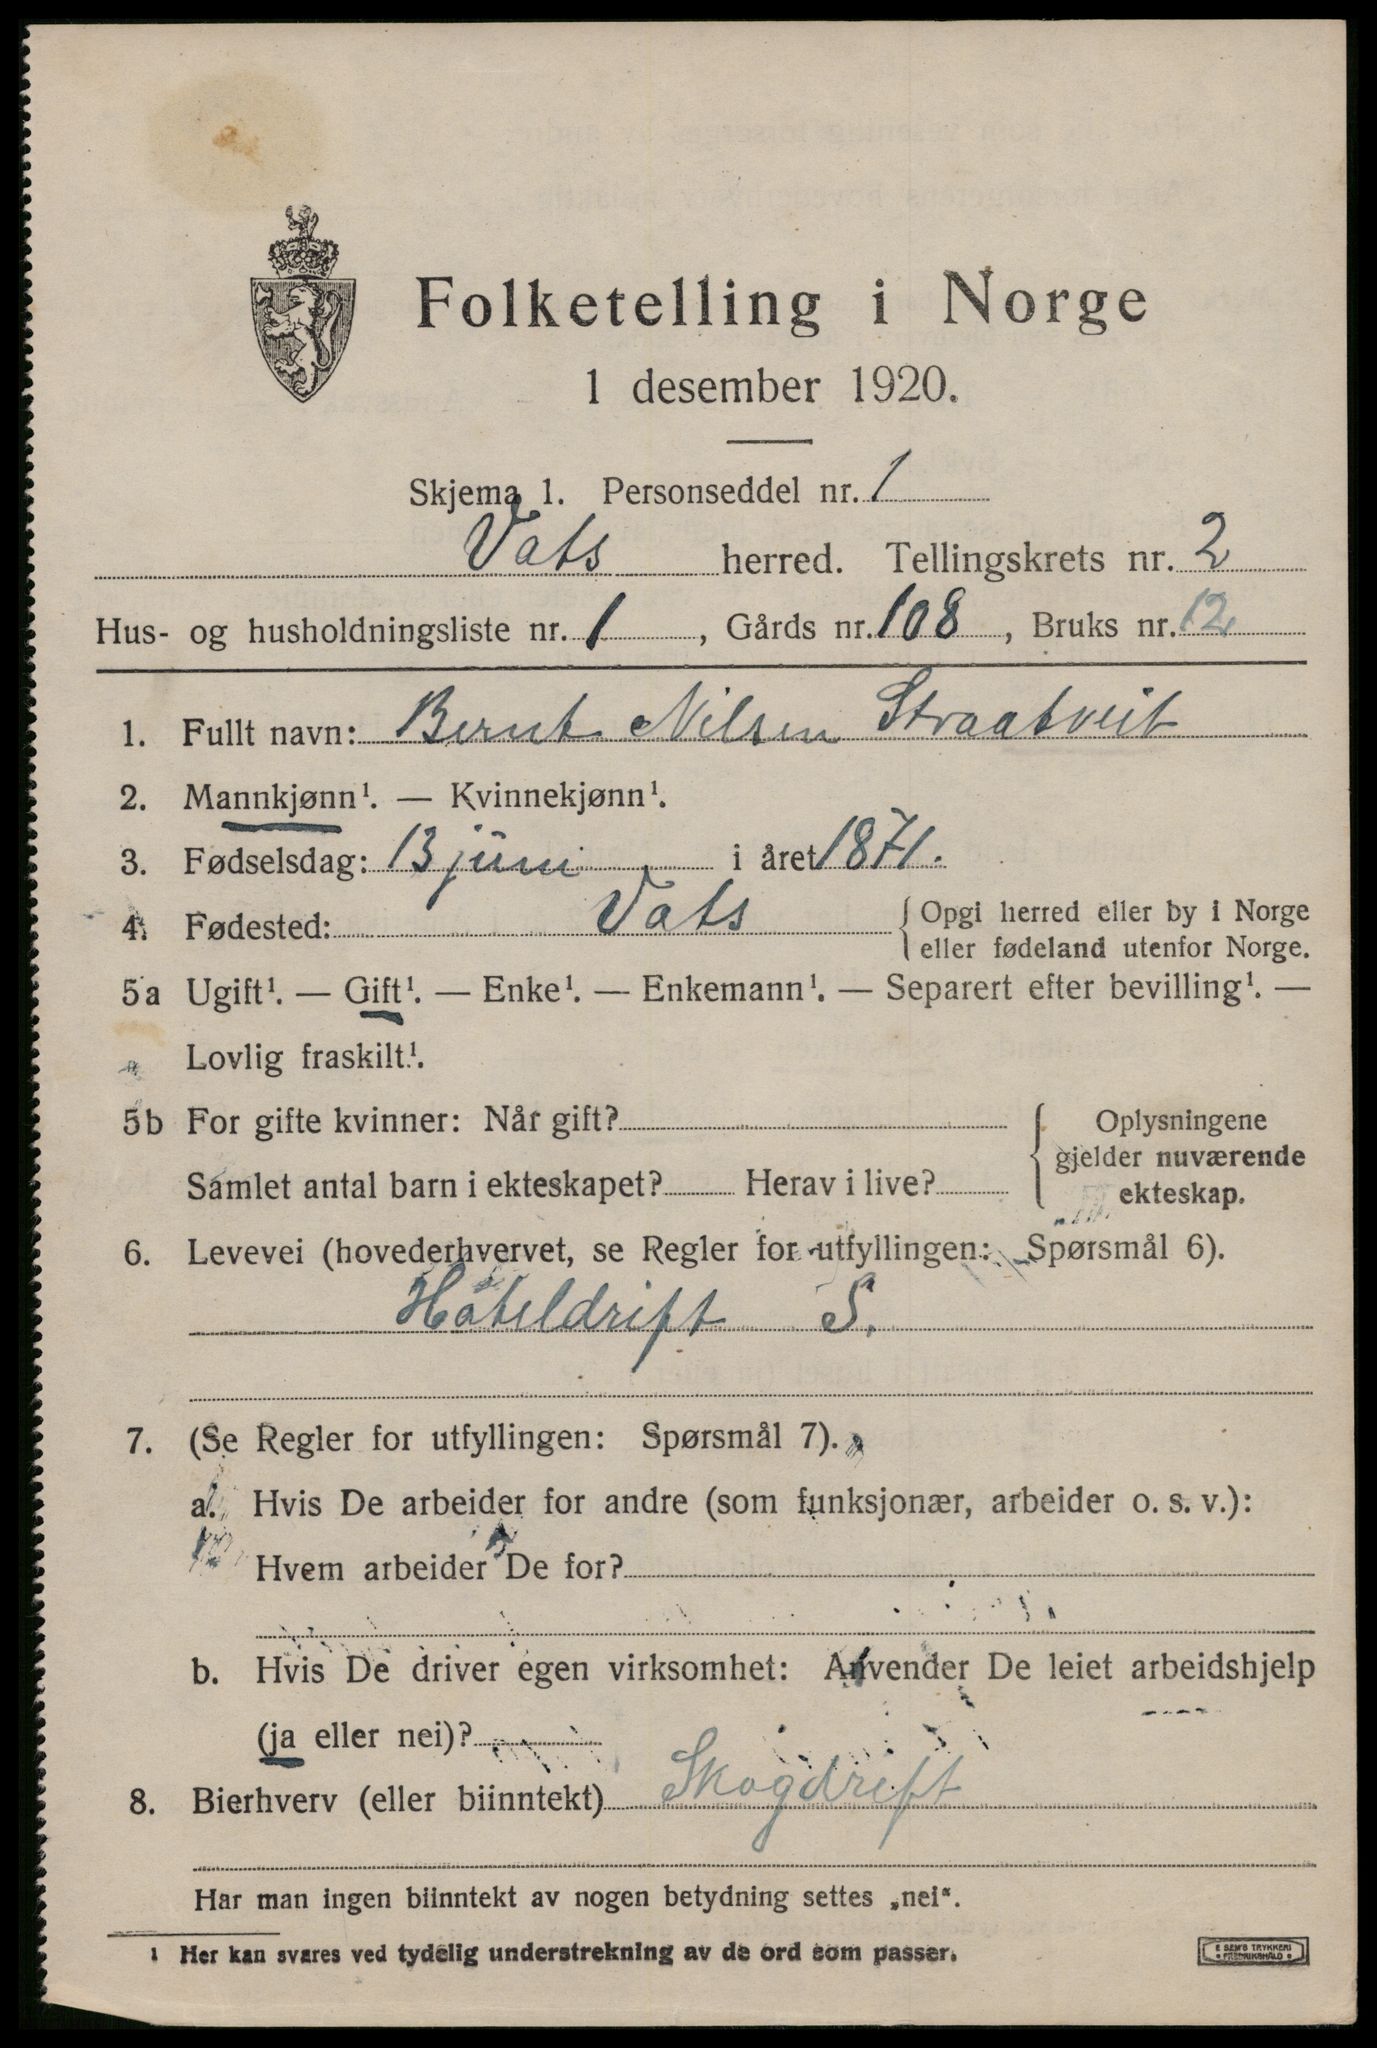 Folketelling i Norge
1 desember 1920.
Skjema 1. Personseddel nr. 1
Vats herred. Tellingskrets nr. 2
Hus- og husholdningsliste nr. 1, Gårds nr. 108, Bruks nr. 12
1. Fullt navn: Bernt Nilsen Straatveit
2. Mannkjønn¹. — Kvinnekjønn¹.
3. Fødselsdag: 13 juni i året 1871.
4. Fødested: Vats { Opgi herred eller by i Norge
eller fødeland utenfor Norge.
5a Ugift¹. — Gift¹. — Enke¹. — Enkemann¹. — Separert efter bevilling¹. —
Lovlig fraskilt¹.
5b For gifte kvinner: Når gift? { Oplysningene
gjelder nuværende
Samlet antal barn i ekteskapet? Herav i live? ekteskap.
6. Levevei (hovederhvervet, se Regler for utfyllingen: Spørsmål 6).
Hoteldrift S.
7. (Se Regler for utfyllingen: Spørsmål 7).
a. Hvis De arbeider for andre (som funksjonær, arbeider o. s. v.):
Hvem arbeider De for?
b. Hvis De driver egen virksomhet: Anvender De leiet arbeidshjelp
(ja eller nei)?
8. Bierhverv (eller biinntekt) Skogdrift
Har man ingen biinntekt av nogen betydning settes „nei“.
1 Her kan svares ved tydelig understrekning av de ord som passer.
E SEM'S TRYKKERI
FREDRIKSHALD